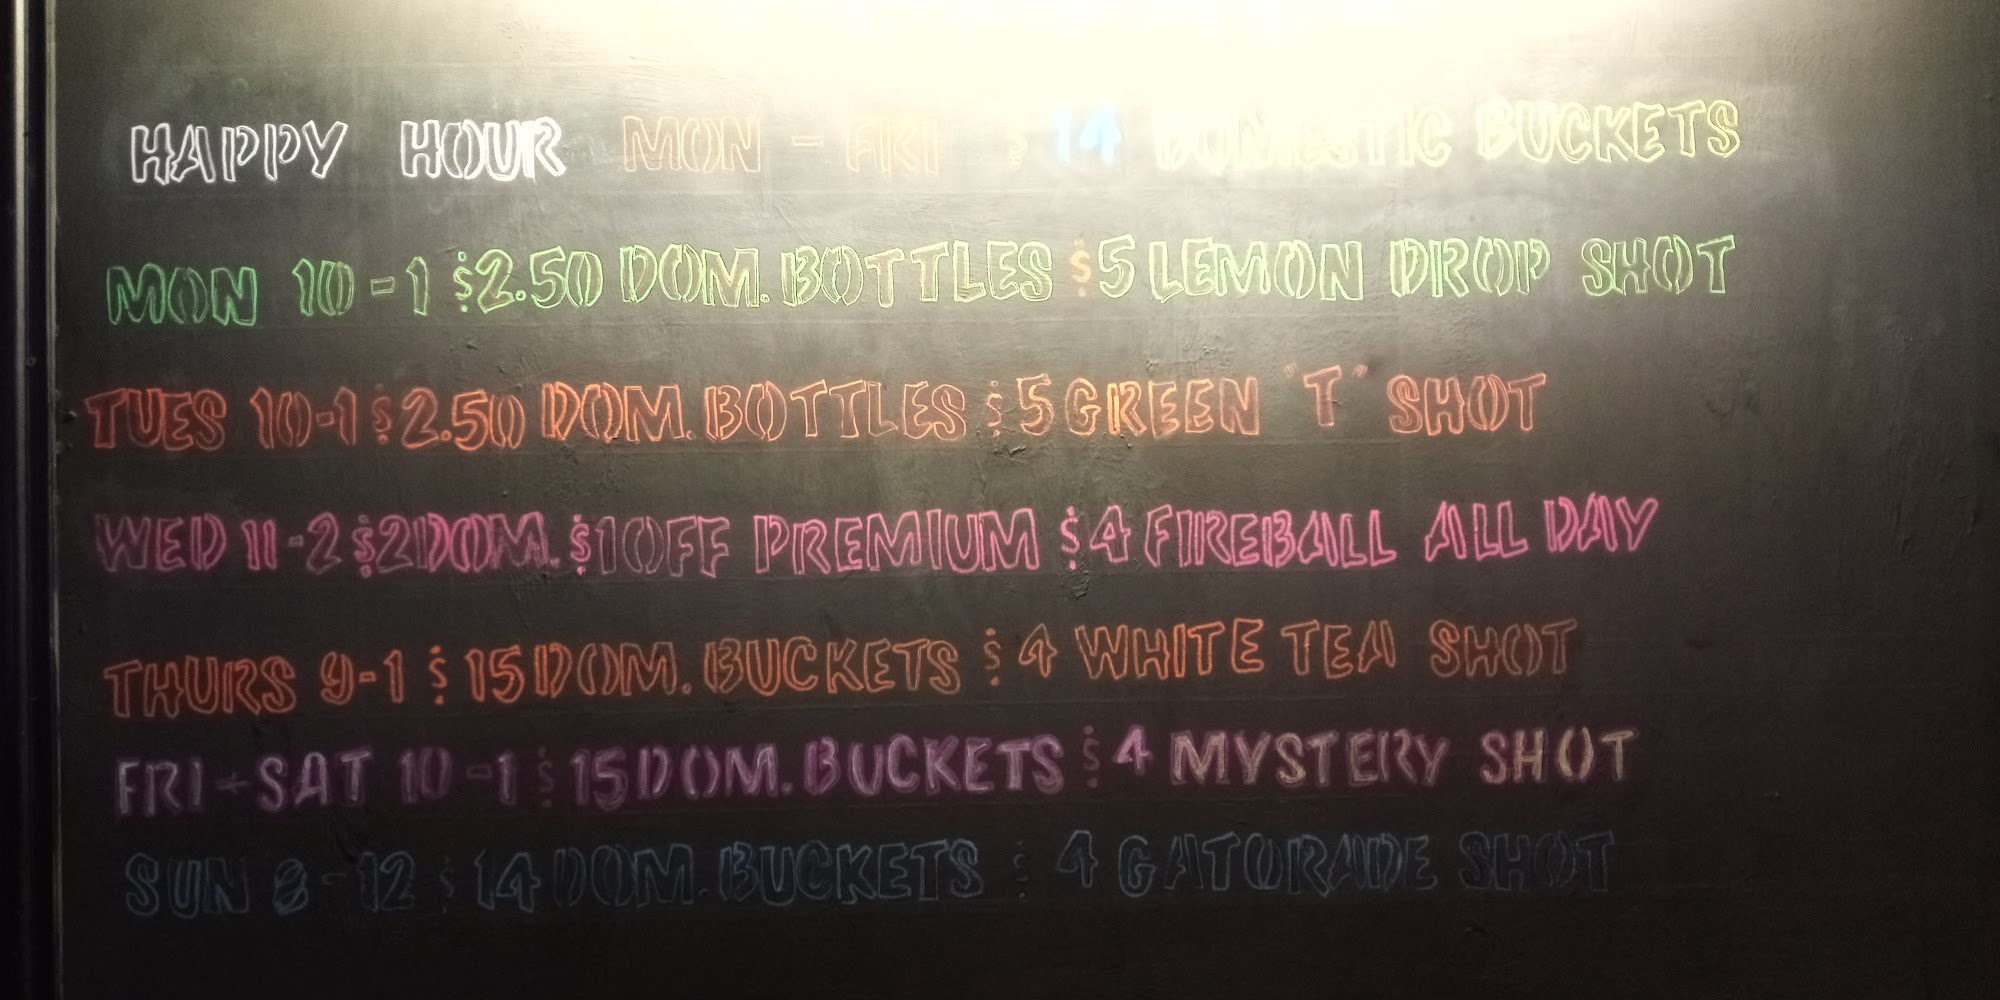 HAPPY HOUR MON - FRI $14 DOMESTIC BUCKETS
MON 10-1 $2.50 DOM. BOTTLES $5 LEMON DROP SHOT
TUES 10-1 $2.50 DOM. BOTTLES $5 GREEN "T" SHOT
WED 11-2 $2 DOM. $1 OFF PREMIUM $4 FIREBALL ALL DAY
THURS 9-1 $15 DOM. BUCKETS $4 WHITE TEA SHOT
FRI-SAT 10-1 $15 DOM. BUCKETS $4 MYSTERY SHOT
SUN 8-12 $14 DOM. BUCKETS $4 GATORADE SHOT